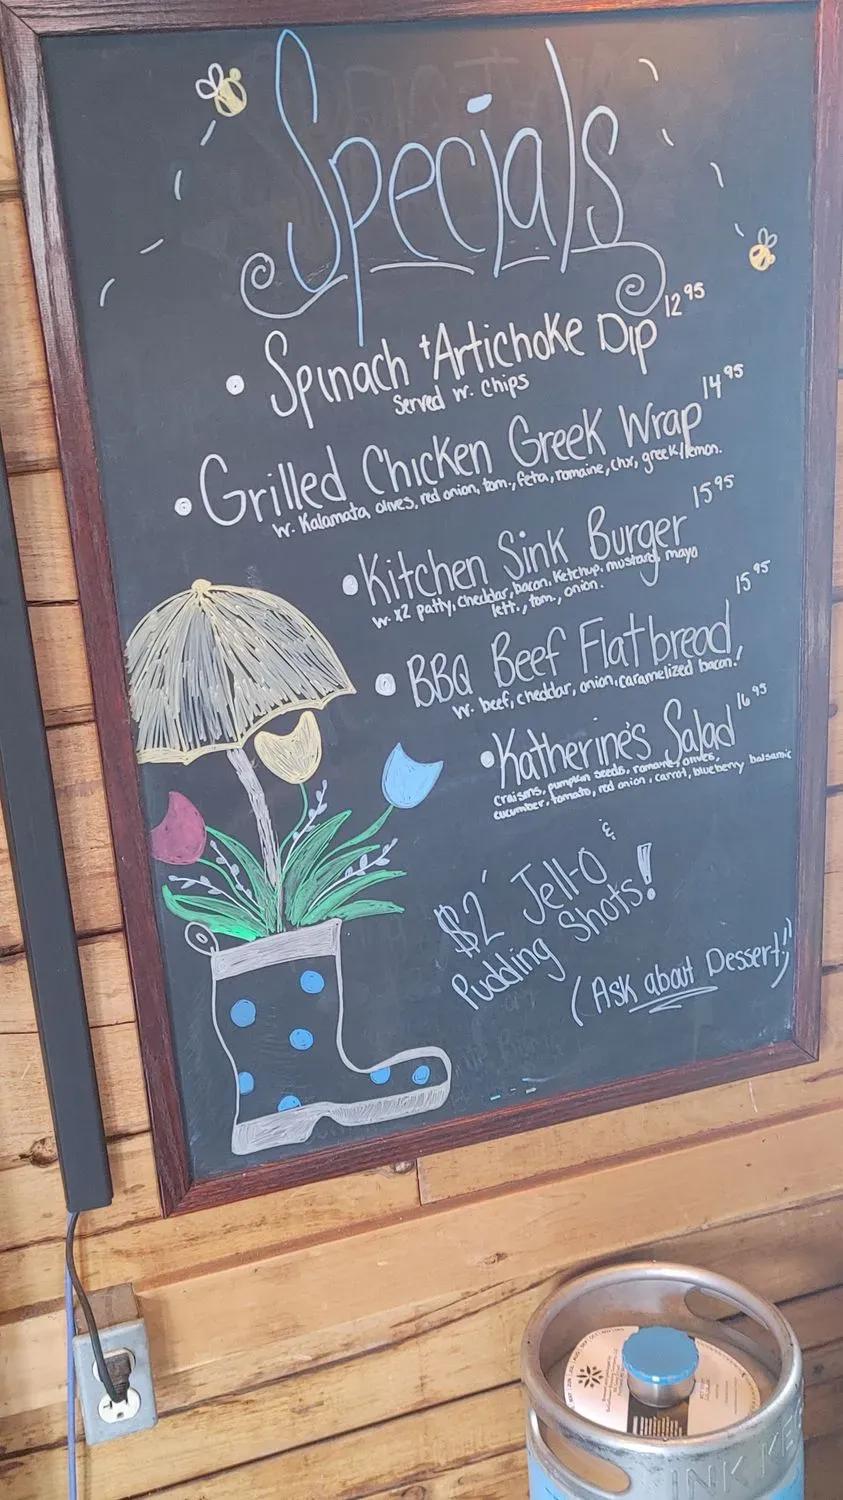 Specials
• Spinach + Artichoke Dip 12 95
Served w. chips
• Grilled Chicken Greek Wrap 14 95
w. Kalamata, olives, red onion, tom., feta, romaine, chx, greek/lemon.
• Kitchen Sink Burger 15 95
w. x2 patty, cheddar, bacon, Ketchup, mustard, mayo
lett., tom., onion.
• BBQ Beef Flatbread 15 95
w. beef, cheddar, onion, caramelized bacon!
• Katherine's Salad 16 95
craisins, pumpkin seeds, romaine, olives,
cucumber, tomato, red onion, carrot, blueberry balsamic
$2 Jell-O &
Pudding Shots!
(Ask about Dessert!)
INK KE